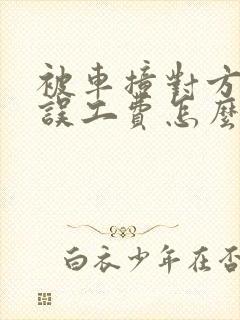 被車撞對方
誤工費怎麼
白衣少年在否